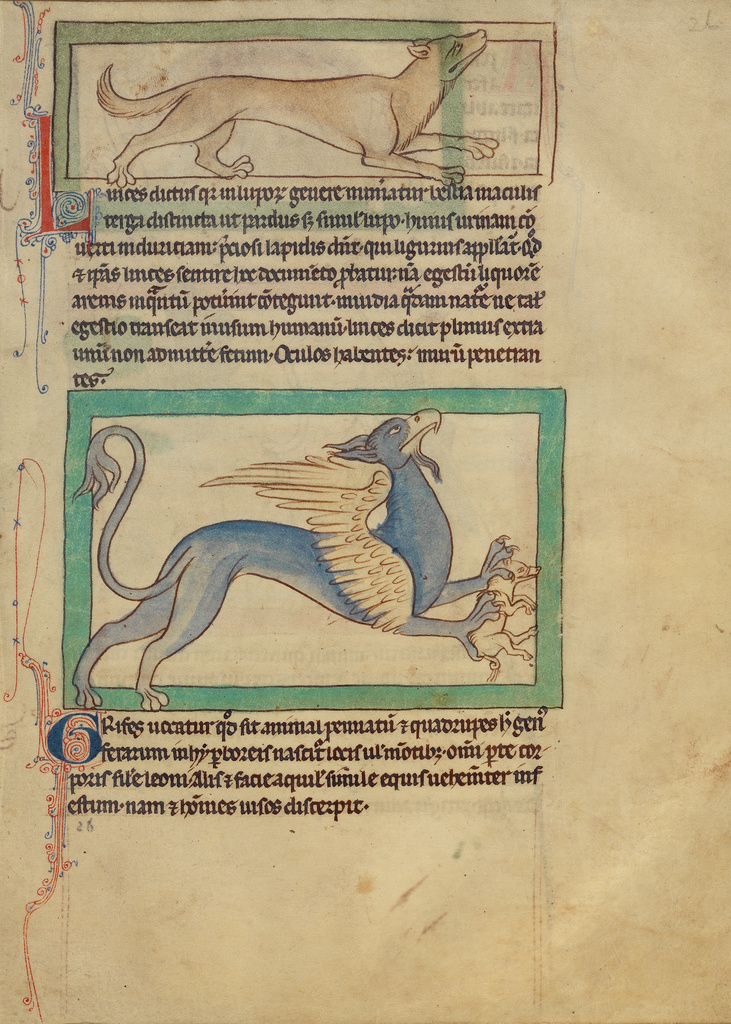 26
Linces dictus qr̃ in lupoꝝ genere numeratur bestia maculis
terga distincta ut pardus sꝫ simil̃ lupo. huius urinam cõ
uerti in duriciam p̃ciosi lapidis dñt. qui ligurius appllat̃. Qd̾
⁊ ip̃as linces sentire hoc documẽto ꝓbatur. nã egestũ liquorẽ
arenis inq̃ntũ potuerĩt cõtegunt. inuidia q̃dam nat̾e ne tal̾
egestio transeat in usum humanũ. linces dicit plinius extra
unũ non admitt̾e fetum. Oculos habentes: murũ penetran
tes.
GRifes uocatur qd̾ sit animal pennatũ ⁊ quadrupes. h̾ gen̾
ferarum in hyꝑboreis nascit̾ locis ul̾ mõtibꝫ. om̃i ꝑte cor
poris sil̾e leoni. Alis ⁊ facie aquil̾ simile equis uehem̾ter inf
estum. nam ⁊ hoĩes uisos discerpit.
26